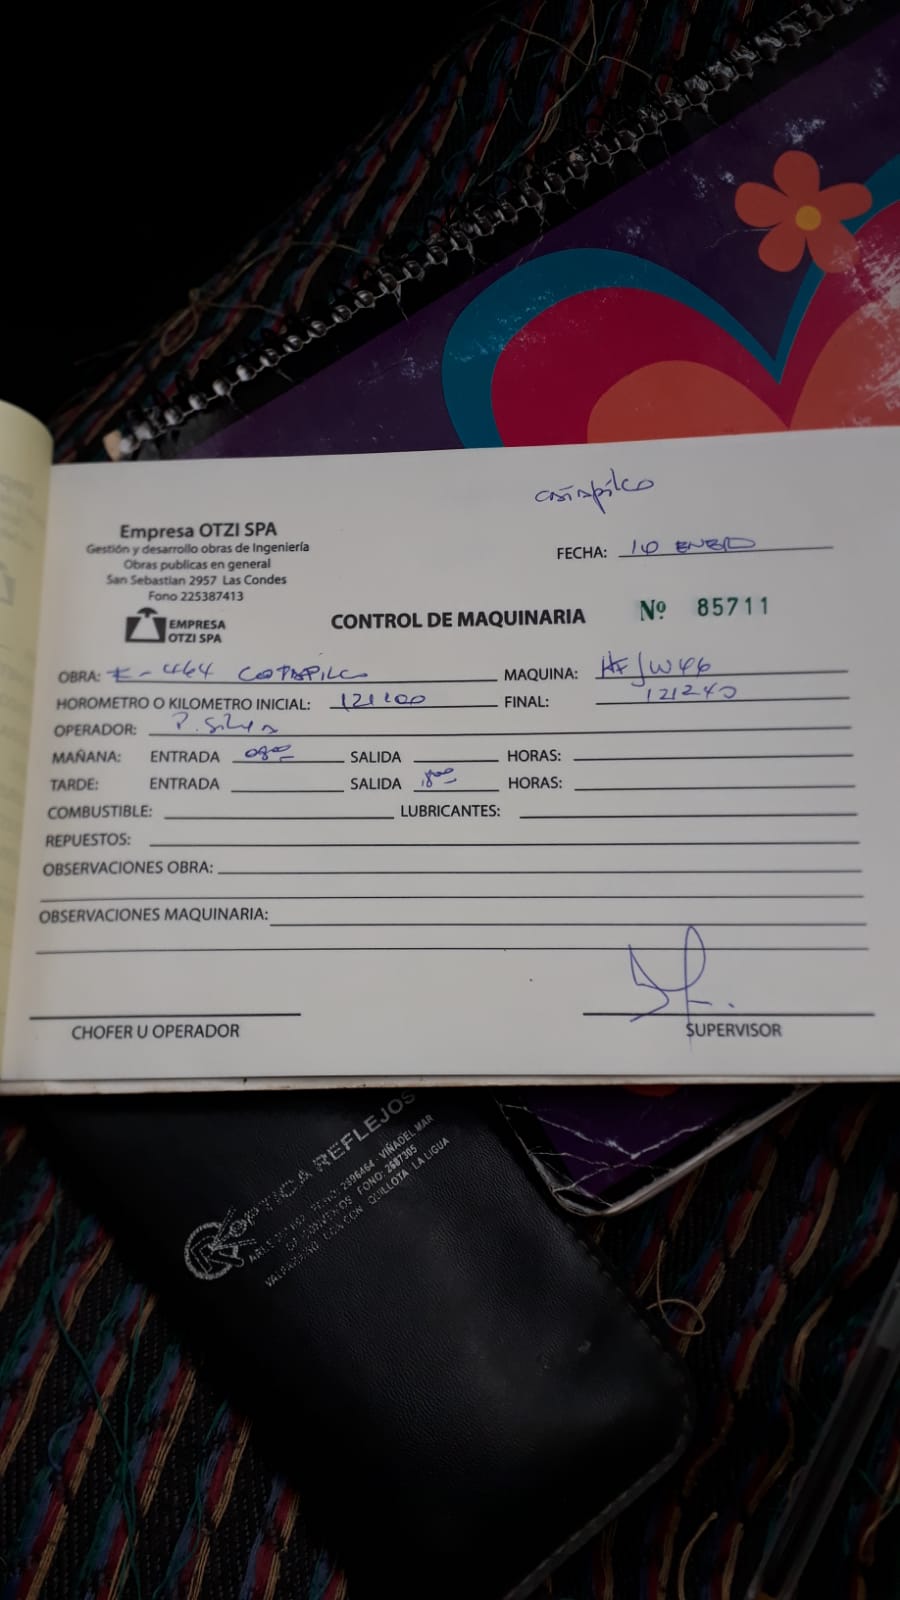 Catapilco
Empresa OTZI SPA
Gestión y desarrollo obras de Ingeniería
Obras publicas en general
San Sebastian 2957 Las Condes
Fono 225387413
FECHA: 10 ENERO
EMPRESA
OTZI SPA
CONTROL DE MAQUINARIA
Nº 85711
OBRA: E-464 CATAPILCO MAQUINA: HFJW46
HOROMETRO O KILOMETRO INICIAL: 121100 FINAL: 121240
OPERADOR: P. Silva
MAÑANA: ENTRADA 0800 SALIDA HORAS:
TARDE: ENTRADA SALIDA 1800 HORAS:
COMBUSTIBLE: LUBRICANTES:
REPUESTOS:
OBSERVACIONES OBRA:
OBSERVACIONES MAQUINARIA:
CHOFER U OPERADOR SUPERVISOR
OPTICA REFLEJOS
2696464 - VIÑA DEL MAR
CONVENIOS FONO: 2687305
VALPARAISO QUILLOTA LA LIGUA